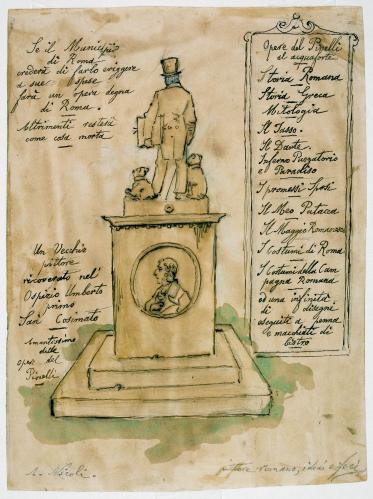 Se il Municipio
di Roma
crederà di farlo eriggere
a sue spese
farà un opera degna
di Roma.
Altrimenti resterà
come cosa morta
Un Vecchio
pittore
ricoverato nel'
Ospizio Umberto
primo
San Cosimato
Amantissimo
delle
opere del
Pinelli
Opere del Pinelli
ed acqueforte
Storia Romana
Storia Greca
Mitologia
Il Tasso.
Il Dante.
Inferno Purgatorio
e Paradiso
I promessi Sposi
Il Meo Patacca
Il Maggio Romanesco
I Costumi di Roma
I Costumi della Cam
pagna Romana
ed una infinità
di disegni
eseguiti a penna
e macchiati di
bistro
pittore romano, ideai e feci